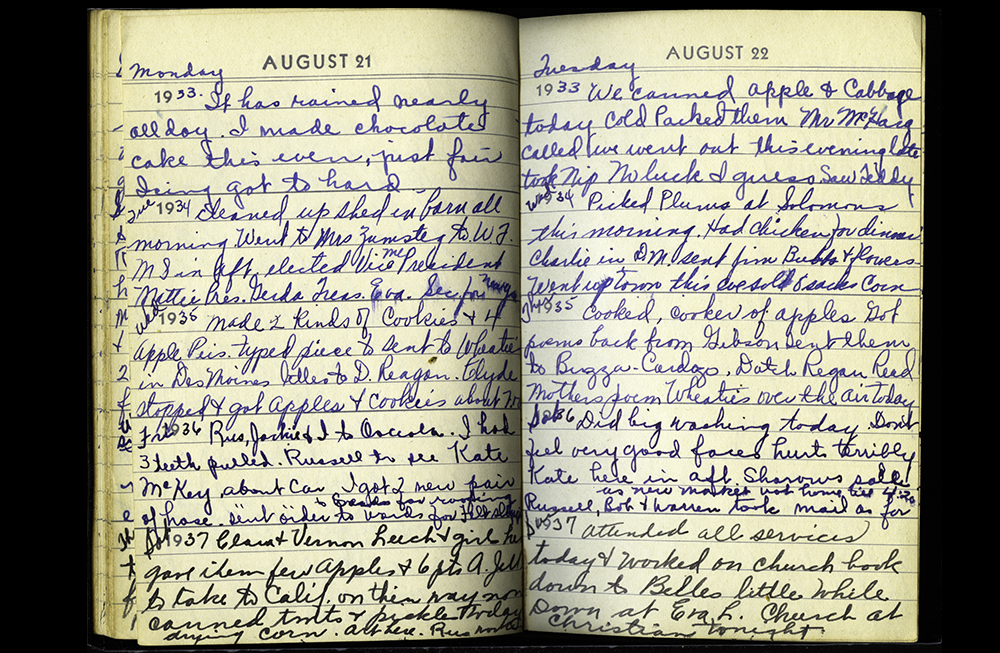 AUGUST 21
Monday
1933. It has rained nearly
all day. I made chocolate
cake this even, just fair
Icing got to hard
Tue 1934 Cleaned up shed in barn all
morning. Went to Mrs Zumsteg to W.F.
M S in aft. elected Vice President
me
Mattie Pres. Gerda Treas. Eva. Sec for
Wed 1935 Made 2 kinds of Cookies & 4
apple Pies. typed piece to sent to Wheaties
in Des Moines letter to D. Reagan. Clyde
stopped & got apples & cookies about
Fri 1936 Rus, Jackie & I to Osceola. I had
3 teeth pulled. Russell to see Kate
McKey about Car I got 2 new pair
of hose. sent order to wards for
Sat 1937 Clara & Vernon Leech & girl
gave them few apples & 6 pts A. Jell
to take to Calif. on their way now
canned & pickles today
drying corn. all here. Rus
AUGUST 22
Tuesday
1933 We canned apple & Cabbage
today Cold Packed them Mr McHarg
called we went out this evening late
took Nip No luck I guess. Saw Teddy
Wed 34 Picked Plums at Solomons
this morning. Had chicken for dinner
Charlie in D.M. sent Jim Bubbs & flowers
Went up town this eve sold 8 sacks Corn
Th 1935 Cooked, cooker of apples. Got
poems back from Gibson sent them
to Buzza-Cardozo. Dutch Regan Read
Mothers poem Wheaties over the air today
Sat 36 Did big washing today. Don't
feel very good face hurts terribly
Kate here in aft. Sharows
as new market not home
Russell, Bob & Warren took mail as far
Sun 1937 attended all services
today & worked on church book
down to Belles little while
Down at Eva L. Church at
Christian tonight.